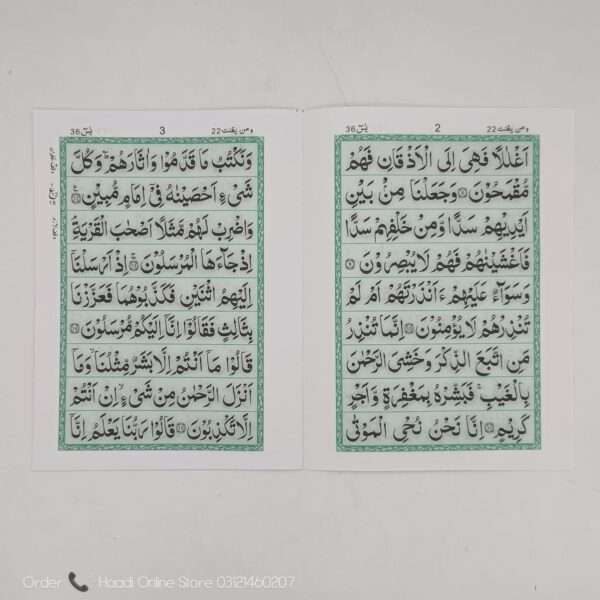 ومن يقنت 22
2
يٰسٓ 36
اَغْلٰلًا فَهِىَ اِلَى الْاَذْقَانِ فَهُمْ
مُّقْمَحُوْنَ ۝ وَجَعَلْنَا مِنْۢ بَيْنِ
اَيْدِيْهِمْ سَدًّا وَّمِنْ خَلْفِهِمْ سَدًّا
فَاَغْشَيْنٰهُمْ فَهُمْ لَا يُبْصِرُوْنَ ۝
وَسَوَآءٌ عَلَيْهِمْ ءَاَنْذَرْتَهُمْ اَمْ لَمْ
تُنْذِرْهُمْ لَا يُؤْمِنُوْنَ ۝ اِنَّمَا تُنْذِرُ
مَنِ اتَّبَعَ الذِّكْرَ وَخَشِىَ الرَّحْمٰنَ
بِالْغَيْبِ ۚ فَبَشِّرْهُ بِمَغْفِرَةٍ وَّاَجْرٍ
كَرِيْمٍ ۝ اِنَّا نَحْنُ نُحْىِ الْمَوْتٰى
ومن يقنت 22
3
يٰسٓ 36
وَنَكْتُبُ مَا قَدَّمُوْا وَاٰثَارَهُمْ ؕ وَكُلَّ
شَىْءٍ اَحْصَيْنٰهُ فِىْۤ اِمَامٍ مُّبِيْنٍ ۝
وَاضْرِبْ لَهُمْ مَّثَلًا اَصْحٰبَ الْقَرْيَةِ
اِذْ جَآءَهَا الْمُرْسَلُوْنَ ۝ اِذْ اَرْسَلْنَاۤ
اِلَيْهِمُ اثْنَيْنِ فَكَذَّبُوْهُمَا فَعَزَّزْنَا
بِثَالِثٍ فَقَالُوْۤا اِنَّاۤ اِلَيْكُمْ مُّرْسَلُوْنَ ۝
قَالُوْا مَاۤ اَنْتُمْ اِلَّا بَشَرٌ مِّثْلُنَا ۙ وَمَاۤ
اَنْزَلَ الرَّحْمٰنُ مِنْ شَىْءٍ ۙ اِنْ اَنْتُمْ
اِلَّا تَكْذِبُوْنَ ۝ قَالُوْا رَبُّنَا يَعْلَمُ اِنَّاۤ
Order Haadi Online Store 03121460207